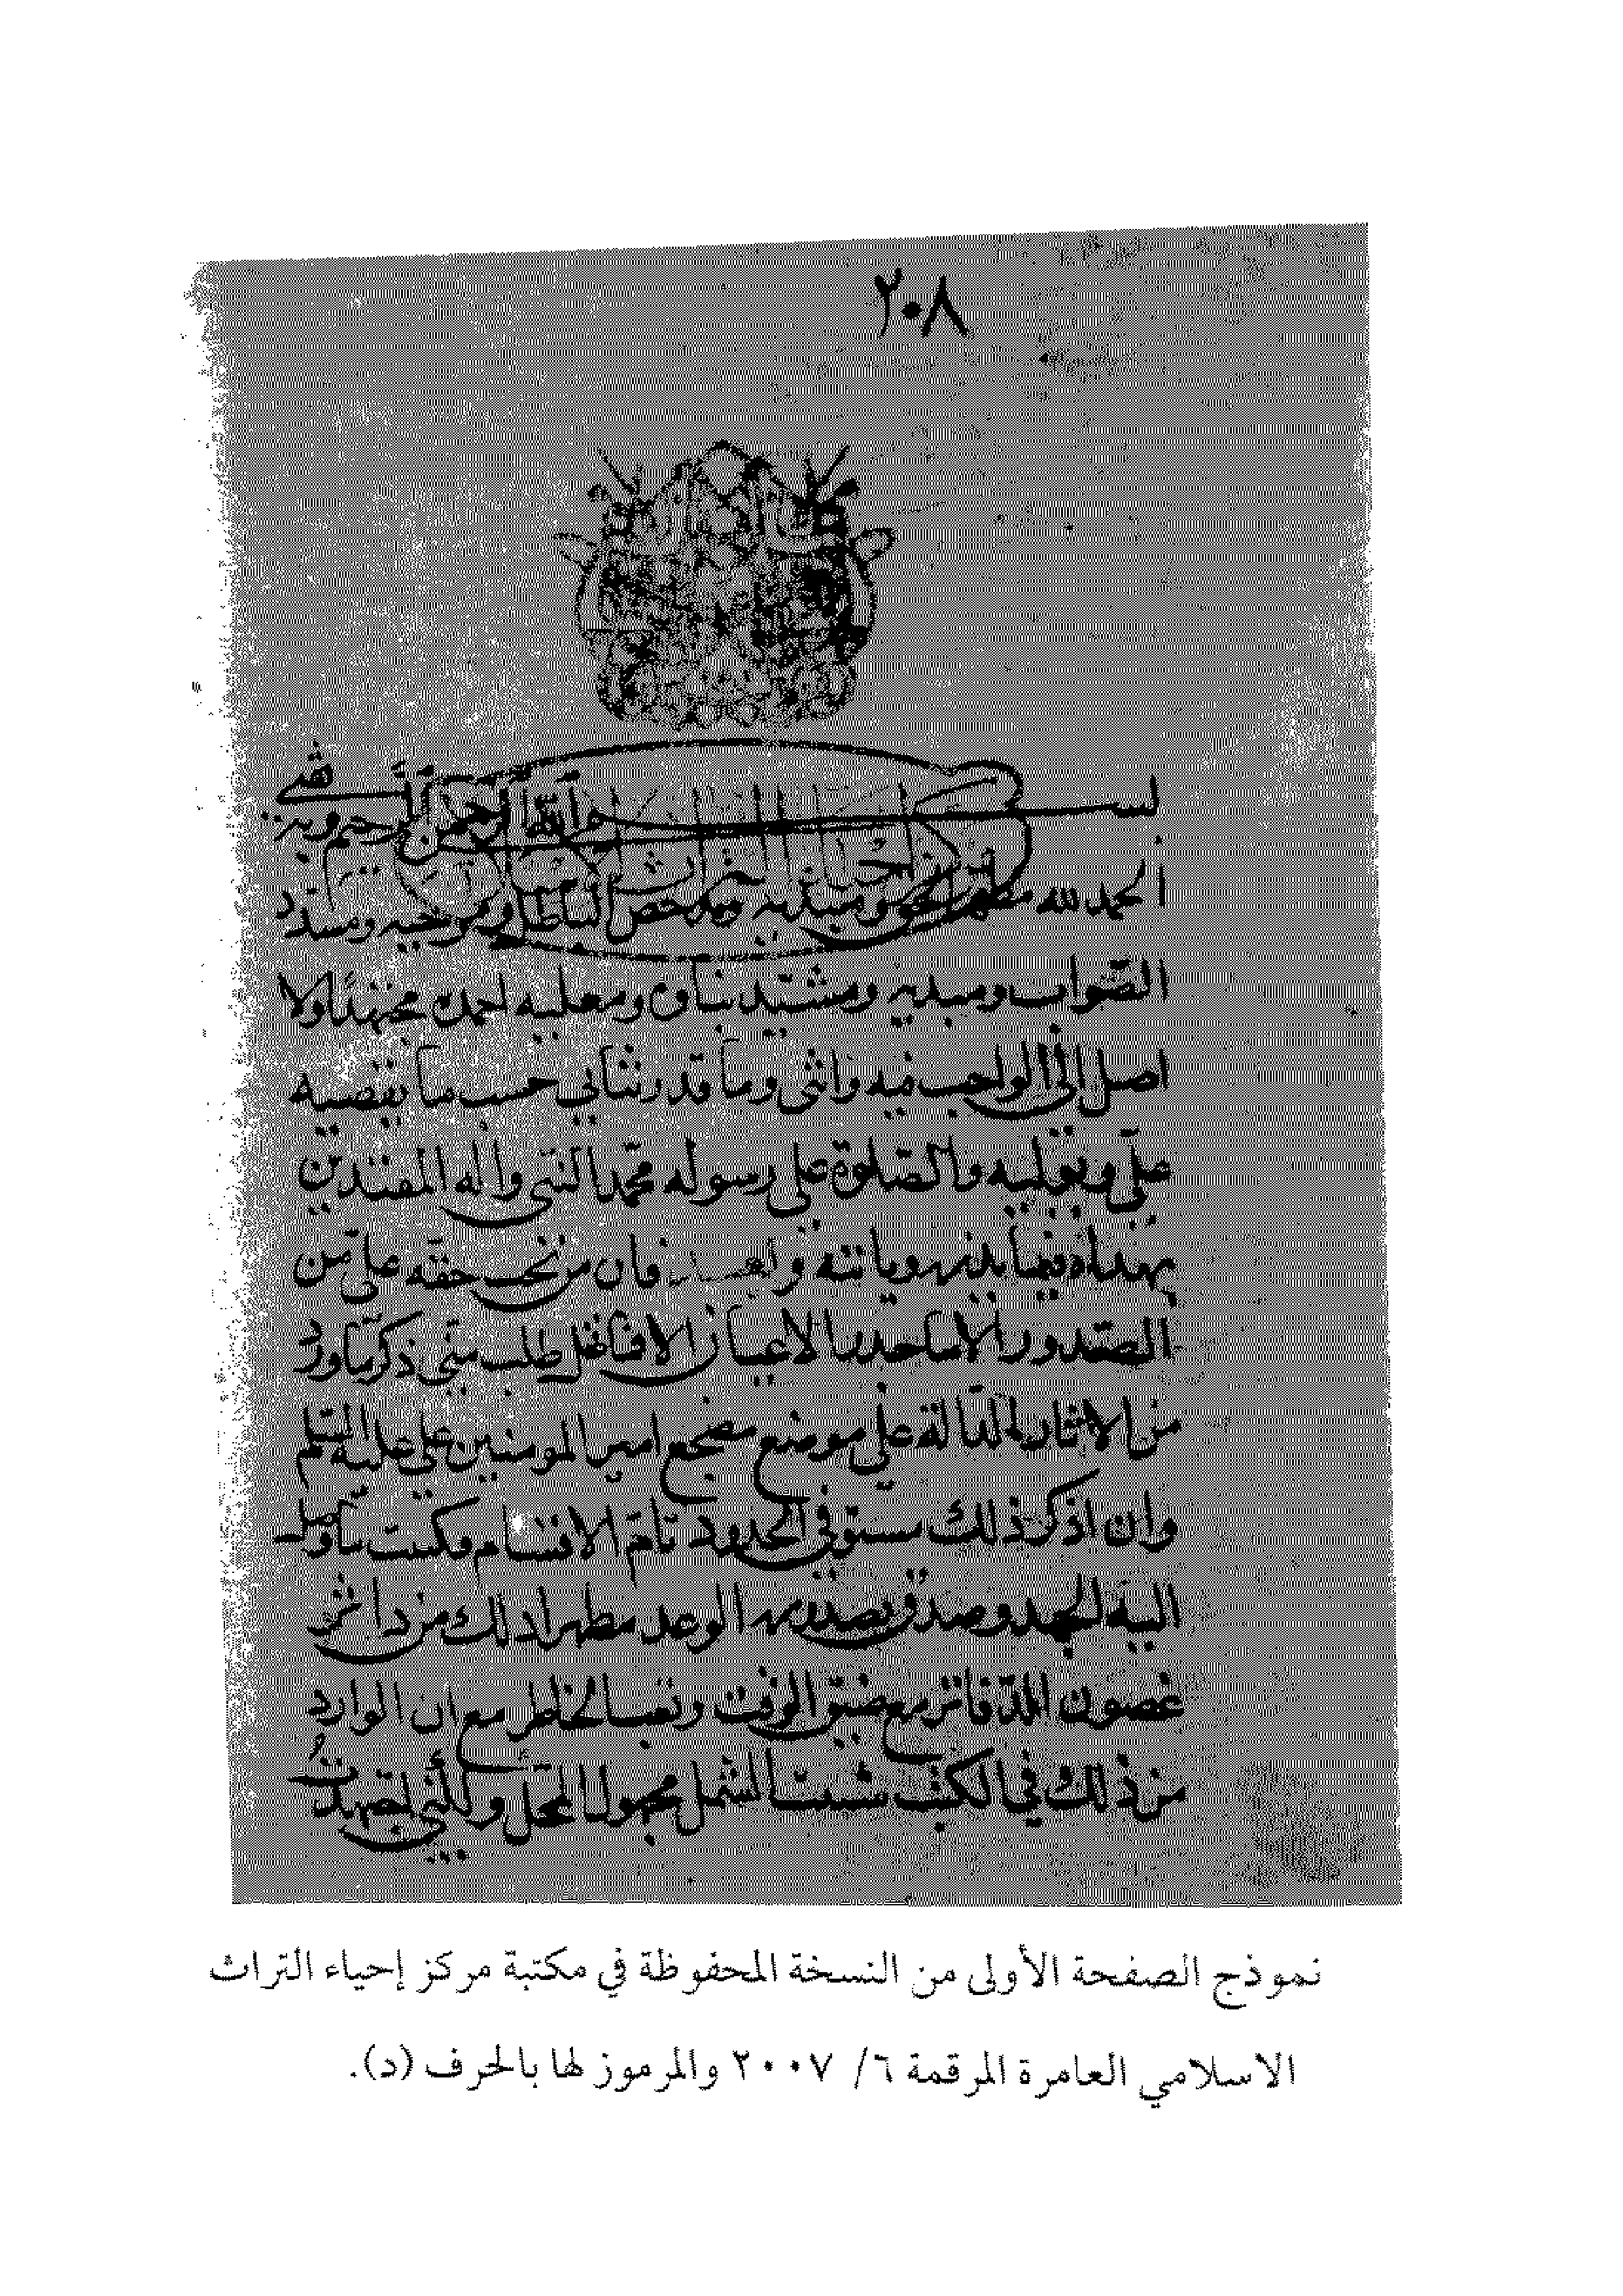 ٢٠٨
بسم الله الرحمن الرحيم وبه
الحمد لله مظهر الحق ومبديه ومدحض الباطل ومدحيه ومسدد
الصواب ومبديه ومشيد بناءه ومعليه احمده مجتهدا ولا
اصل الى الواجب فيه واثنى وما قدر ثنائي حسب ما يقتضيه
على رسوله محمد النبى واله المقتدين
بهداه فيما يذره وياتيه وبعد فان من يجب حقه على من
الصدور الاماجد الاعيان الافاضل طلب منى ذكر ما ورد
من الاثار الدالة على موضع مضجع امير المومنين على عليه السلم
وان اذكر ذلك مستوفى الحدود تام الاقسام فكتبت ما وصل
اليه الجهد وصدق بصدوره الوعد مظهرا ذلك من داثر
غصون المدفاتر مع ضيق الوقت وتعب الخاطر مع ان الوارد
من ذلك في الكتب شتيت الشمل مجهول المحل ولكنى اجتهدت
نموذج الصفحة الأولى من النسخة المحفوظة في مكتبة مركز إحياء التراث
الاسلامي العامرة المرقمة ٦/ ٢٠٠٧ والمرموز لها بالحرف (د).